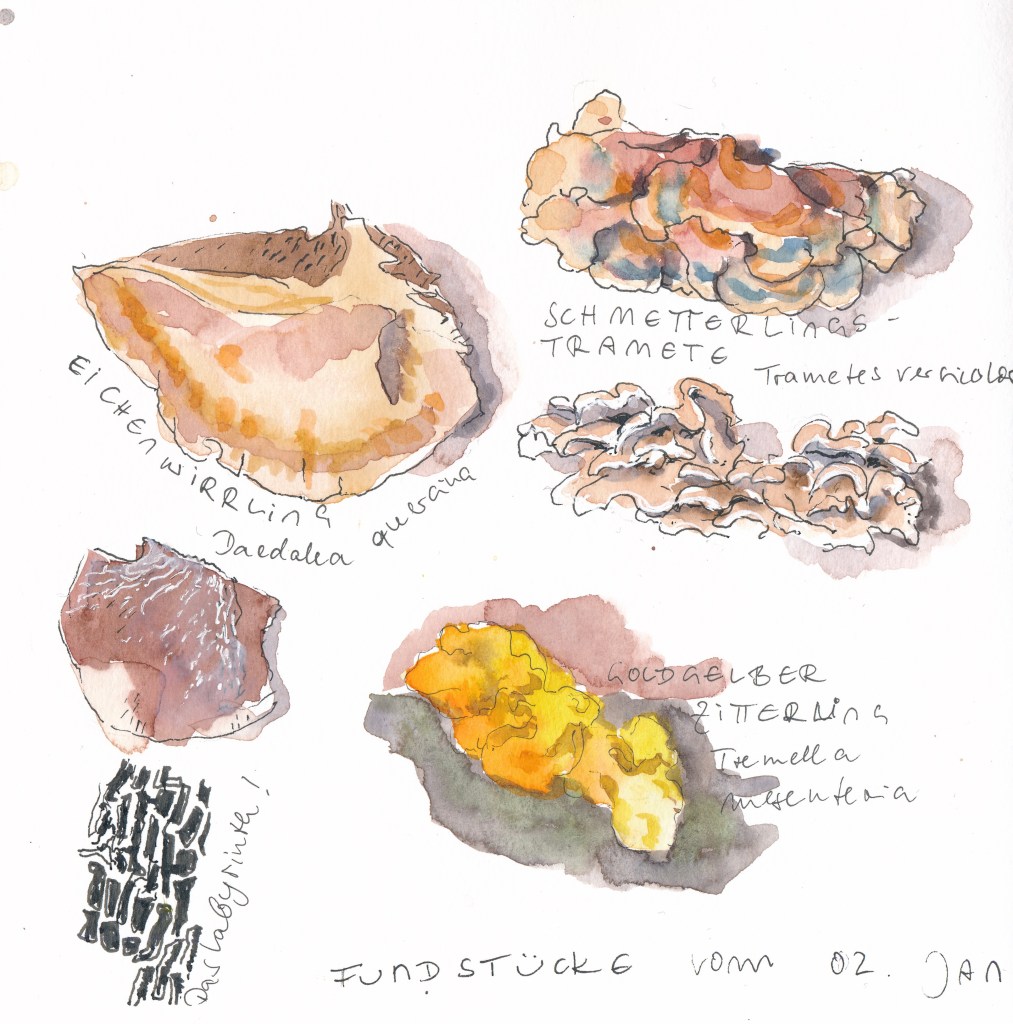 SCHMETTERLINGS-
TRAMETE
Trametes versicolor
EICHENWIRRLING
Daedalea quercina
GOLDGELBER
ZITTERLING
Tremella
mesenteria
Das Labyrinth!
FUNDSTÜCKE vom 02. Jan